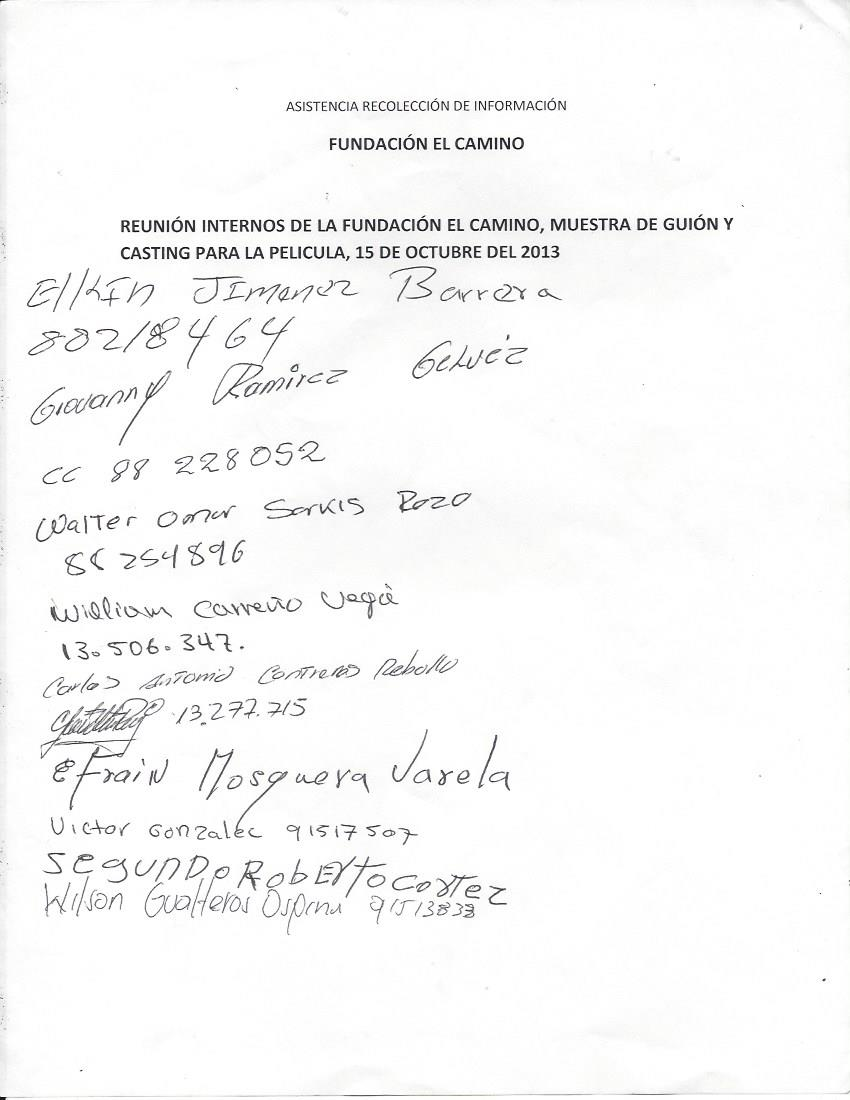 ASISTENCIA RECOLECCIÓN DE INFORMACIÓN
FUNDACIÓN EL CAMINO
REUNIÓN INTERNOS DE LA FUNDACIÓN EL CAMINO, MUESTRA DE GUIÓN Y
CASTING PARA LA PELICULA, 15 DE OCTUBRE DEL 2013
Elkin Jimenez Barrera
88218464
Giovanny Ramirez Gelvéz
CC 88 228052
Walter Omar Sarkis Rozo
88254896
William Carreño Vega
13.506.347.
Carlos Antonio Contreras Rebollo
13.277.715
Efrain Mosquera Varela
Victor Gonzalec 91517507
Segundo Roberto Cortez
Wilson Gualteros Ospina 91513838